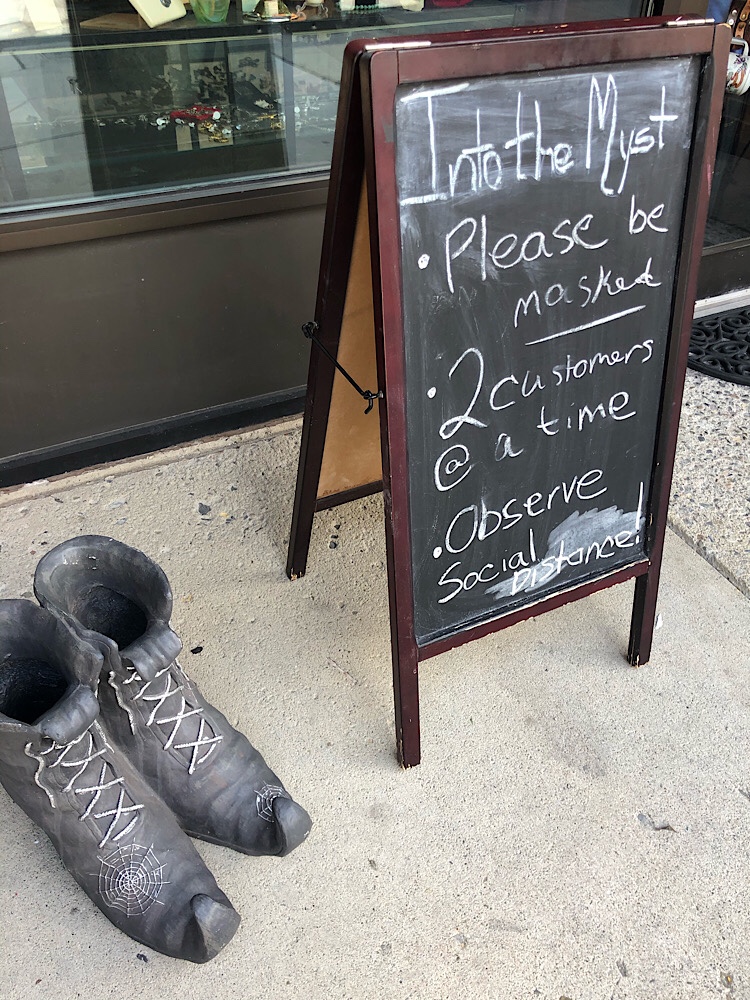 Into the Myst
• Please be
masked
• 2 customers
@ a time
• Observe
Social
Distance!